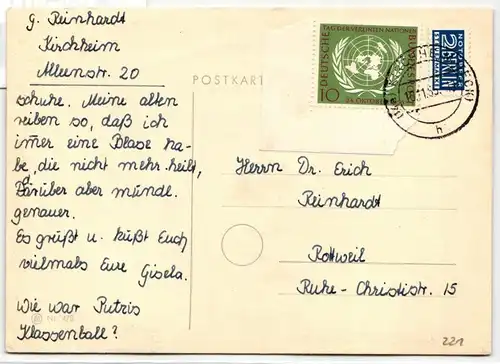 G. Reinhardt
Kirchheim
Alleenstr. 20
schuhe. Meine alten
reiben so, daß ich
imer eine Blase ha-
be, die nicht mehr heilt,
Darüber aber mündl.
genauer.
Es grüßt u. küßt Euch
vielmals Eure Gisela.
Wie war Putzis
Klassenball?
POSTKARTE
DEUTSCHE BUNDESPOST
TAG DER VEREINTEN NATIONEN
10
24. OKTOBER
NOTOPFER
2 BERLIN
STEUERMARKE
h
Herrn Dr. Erich
Reinhardt
Rottweil
Ruhe-Christistr. 15
221